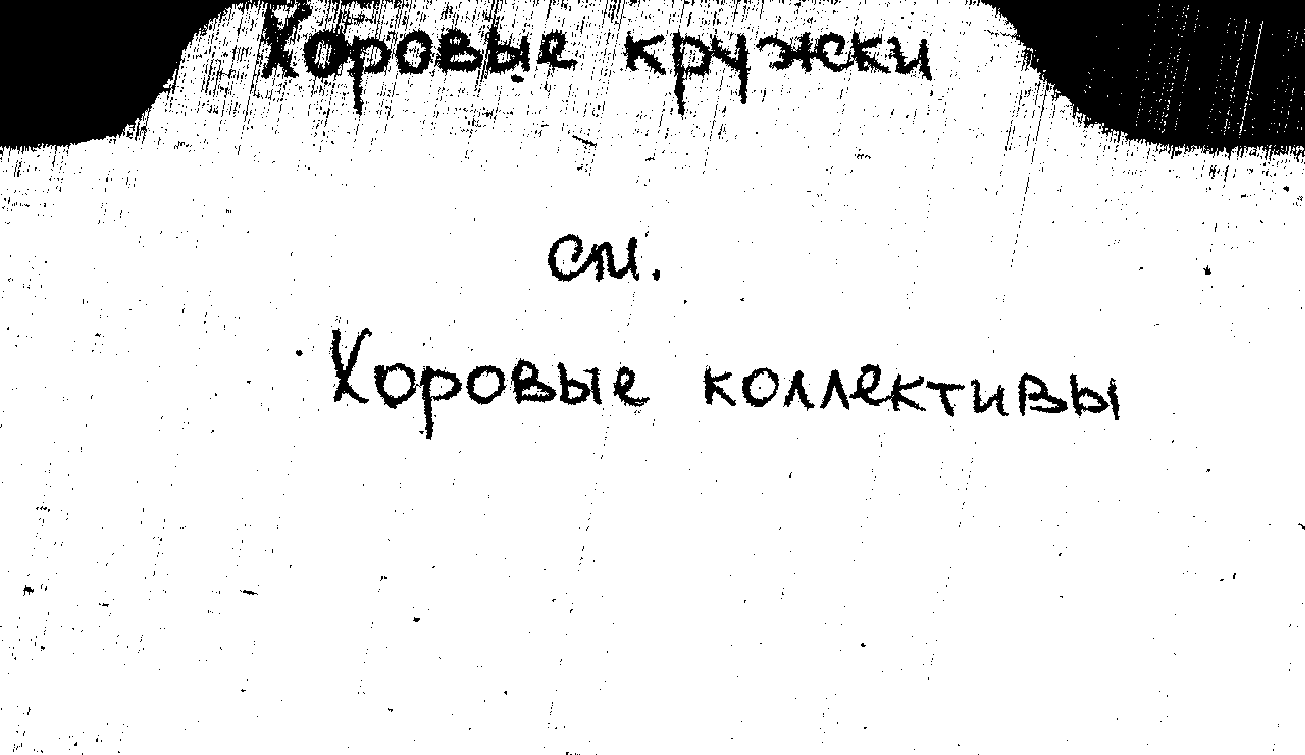 Хоровые кружки
см.
Хоровые коллективы